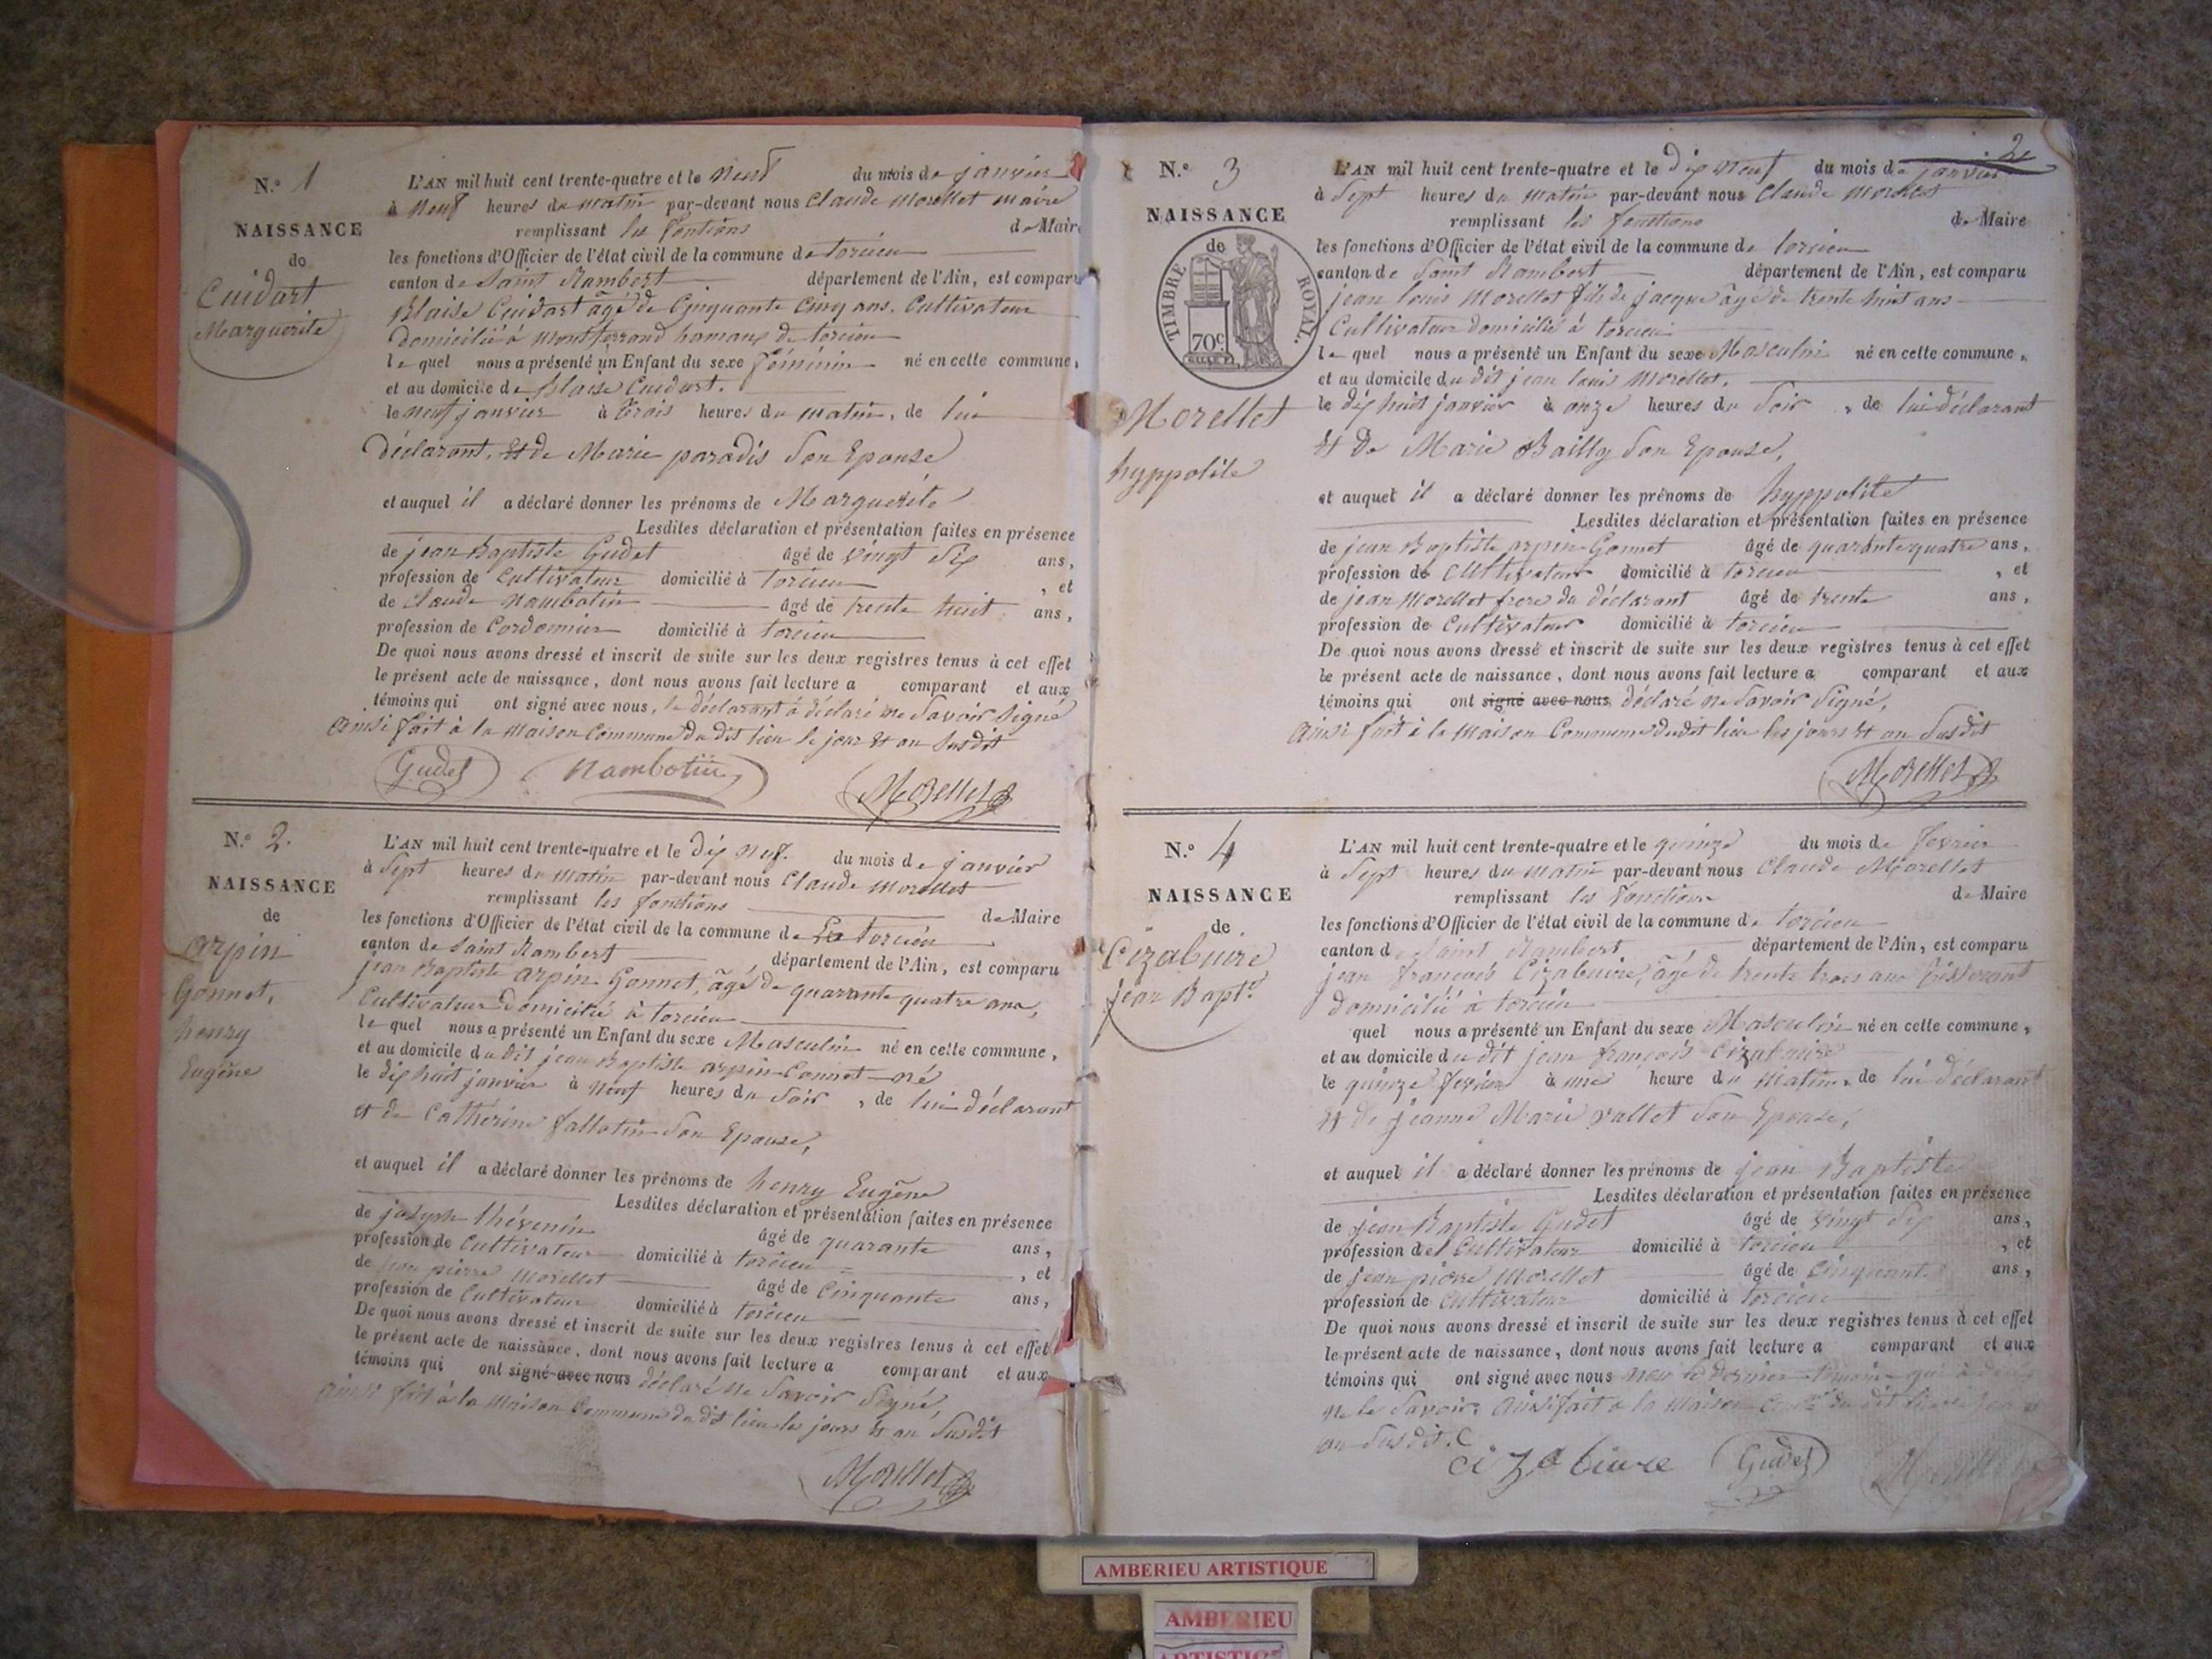 N.º 1
NAISSANCE
de
Cuidart
Marguerite
L'AN mil huit cent trente-quatre et le neuf du mois de janvier
à neuf heures du matin par-devant nous Claude Morellet maire
remplissant les fontions de Maire
les fonctions d'Officier de l'état civil de la commune de torcieu
canton de Saint Rambert département de l'Ain, est comparu
Blaise Cuidart âgé de Cinquante Cinq ans, Cultivateur
Domicilié à Montferrand hamaux de torcieu
le quel nous a présenté un Enfant du sexe féminin né en cette commune,
et au domicile de blaise Cuidart.
le neuf janvier à trois heures du matin, de lui
déclarant, Et de Marie paradis Son Epouse
et auquel il a déclaré donner les prénoms de Marguerite
Lesdites déclaration et présentation faites en présence
de jean Baptiste Gudet âgé de vingt Six ans,
profession de Cultivateur domicilié à torcieu , et
de Claude Nambotin âgé de trente huit ans,
profession de Cordonnier domicilié à torcieu
De quoi nous avons dressé et inscrit de suite sur les deux registres tenus à cet effet
le présent acte de naissance, dont nous avons fait lecture a comparant et aux
témoins qui ont signé avec nous, le déclarant à déclaré ne Savoir Signé
ainsi fait à la Maison Commune du dit lieu le jour Et an Susdit
Gudet Nambotin Morellet
N.º 2.
NAISSANCE
de
arpin
Gonnet,
henry
Eugène
L'AN mil huit cent trente-quatre et le dix neuf. du mois de janvier
à Sept heures du matin par-devant nous Claude Morellet
remplissant les fonctions de Maire
les fonctions d'Officier de l'état civil de la commune de torcieu
canton de Saint Rambert département de l'Ain, est comparu
jean Baptiste arpin Gonnet, âgé de quarante quatre ans,
Cultivateur Domicilié à torcieu
le quel nous a présenté un Enfant du sexe Masculin né en cette commune,
et au domicile du dit jean Baptiste arpin Connet né
le dix huit janvier à neuf heures du Soir, de lui déclarant
Et de Cathérine fallatin Son Epouse,
et auquel il a déclaré donner les prénoms de henry Eugène
Lesdites déclaration et présentation faites en présence
de joseph thévenin âgé de quarante ans,
profession de Cultivateur domicilié à torcieu , et
de jean pierre Morellet âgé de Cinquante ans,
profession de Cultivateur domicilié à torcieu
De quoi nous avons dressé et inscrit de suite sur les deux registres tenus à cet effet
le présent acte de naissance, dont nous avons fait lecture a comparant et aux
témoins qui ont signé avec nous déclaré ne Savoir Signé,
ainsi fait à la Maison Commune du dit lieu les jours Et an Susdit
Morellet
2
N.º 3
NAISSANCE
de
TIMBRE ROYAL.
70c
Morellet
hyppolite
L'AN mil huit cent trente-quatre et le dix neuf du mois de janvier
à Sept heures du matin par-devant nous Claude Morellet
remplissant les fonctions de Maire
les fonctions d'Officier de l'état civil de la commune de torcieu
canton de Saint Rambert département de l'Ain, est comparu
jean louis Morellet fils de jacque âgé de trente huit ans
Cultivateur domicilié à torcieu
le quel nous a présenté un Enfant du sexe Masculin né en cette commune,
et au domicile du dit jean louis Morellet.
le dix huit janvier à onze heures du Soir, de lui déclarant
Et de Marie Bailly Son Epouse,
et auquel il a déclaré donner les prénoms de hyppolite
Lesdites déclaration et présentation faites en présence
de jean Baptiste arpin Gonnet âgé de quarante quatre ans,
profession de Cultivateur domicilié à torcieu , et
de jean Morellet frere du déclarant âgé de trente ans,
profession de Cultivateur domicilié à torcieu
De quoi nous avons dressé et inscrit de suite sur les deux registres tenus à cet effet
le présent acte de naissance, dont nous avons fait lecture a comparant et aux
témoins qui ont signé avec nous déclaré ne Savoir Signé,
ainsi fait à la Maison Commune dudit lieu les jours Et an Susdit
Morellet
N.º 4
NAISSANCE
de
Cizabuire
jean Bapt.
L'AN mil huit cent trente-quatre et le quinze du mois de fevrier
à Sept heures du matin par-devant nous Claude Morellet
remplissant les fonctions de Maire
les fonctions d'Officier de l'état civil de la commune de torcieu
canton de Saint Rambert département de l'Ain, est comparu
jean françois Cizabuire, âgé de trente trois ans tisserant
domicilié à torcieu
quel nous a présenté un Enfant du sexe Masculin né en cette commune,
et au domicile du dit jean françois Cizabuire
le quinze fevrier à une heure du matin, de lui déclarant
Et de jeanne Marie vallet Son Epouse,
et auquel il a déclaré donner les prénoms de jean Baptiste
Lesdites déclaration et présentation faites en présence
de jean Baptiste Gudet âgé de vingt Six ans,
profession de Cultivateur domicilié à torcieu , et
de jean pierre Morellet âgé de Cinquante ans,
profession de Cultivateur domicilié à torcieu
De quoi nous avons dressé et inscrit de suite sur les deux registres tenus à cet effet
le présent acte de naissance, dont nous avons fait lecture a comparant et aux
témoins qui ont signé avec nous non le dernier témoin qui à
ne le Savoir. ainsi fait à la Maison du dit lieu
an Susdit.
cizabuire Gudet
AMBERIEU ARTISTIQUE
AMBERIEU
ARTISTIQUE